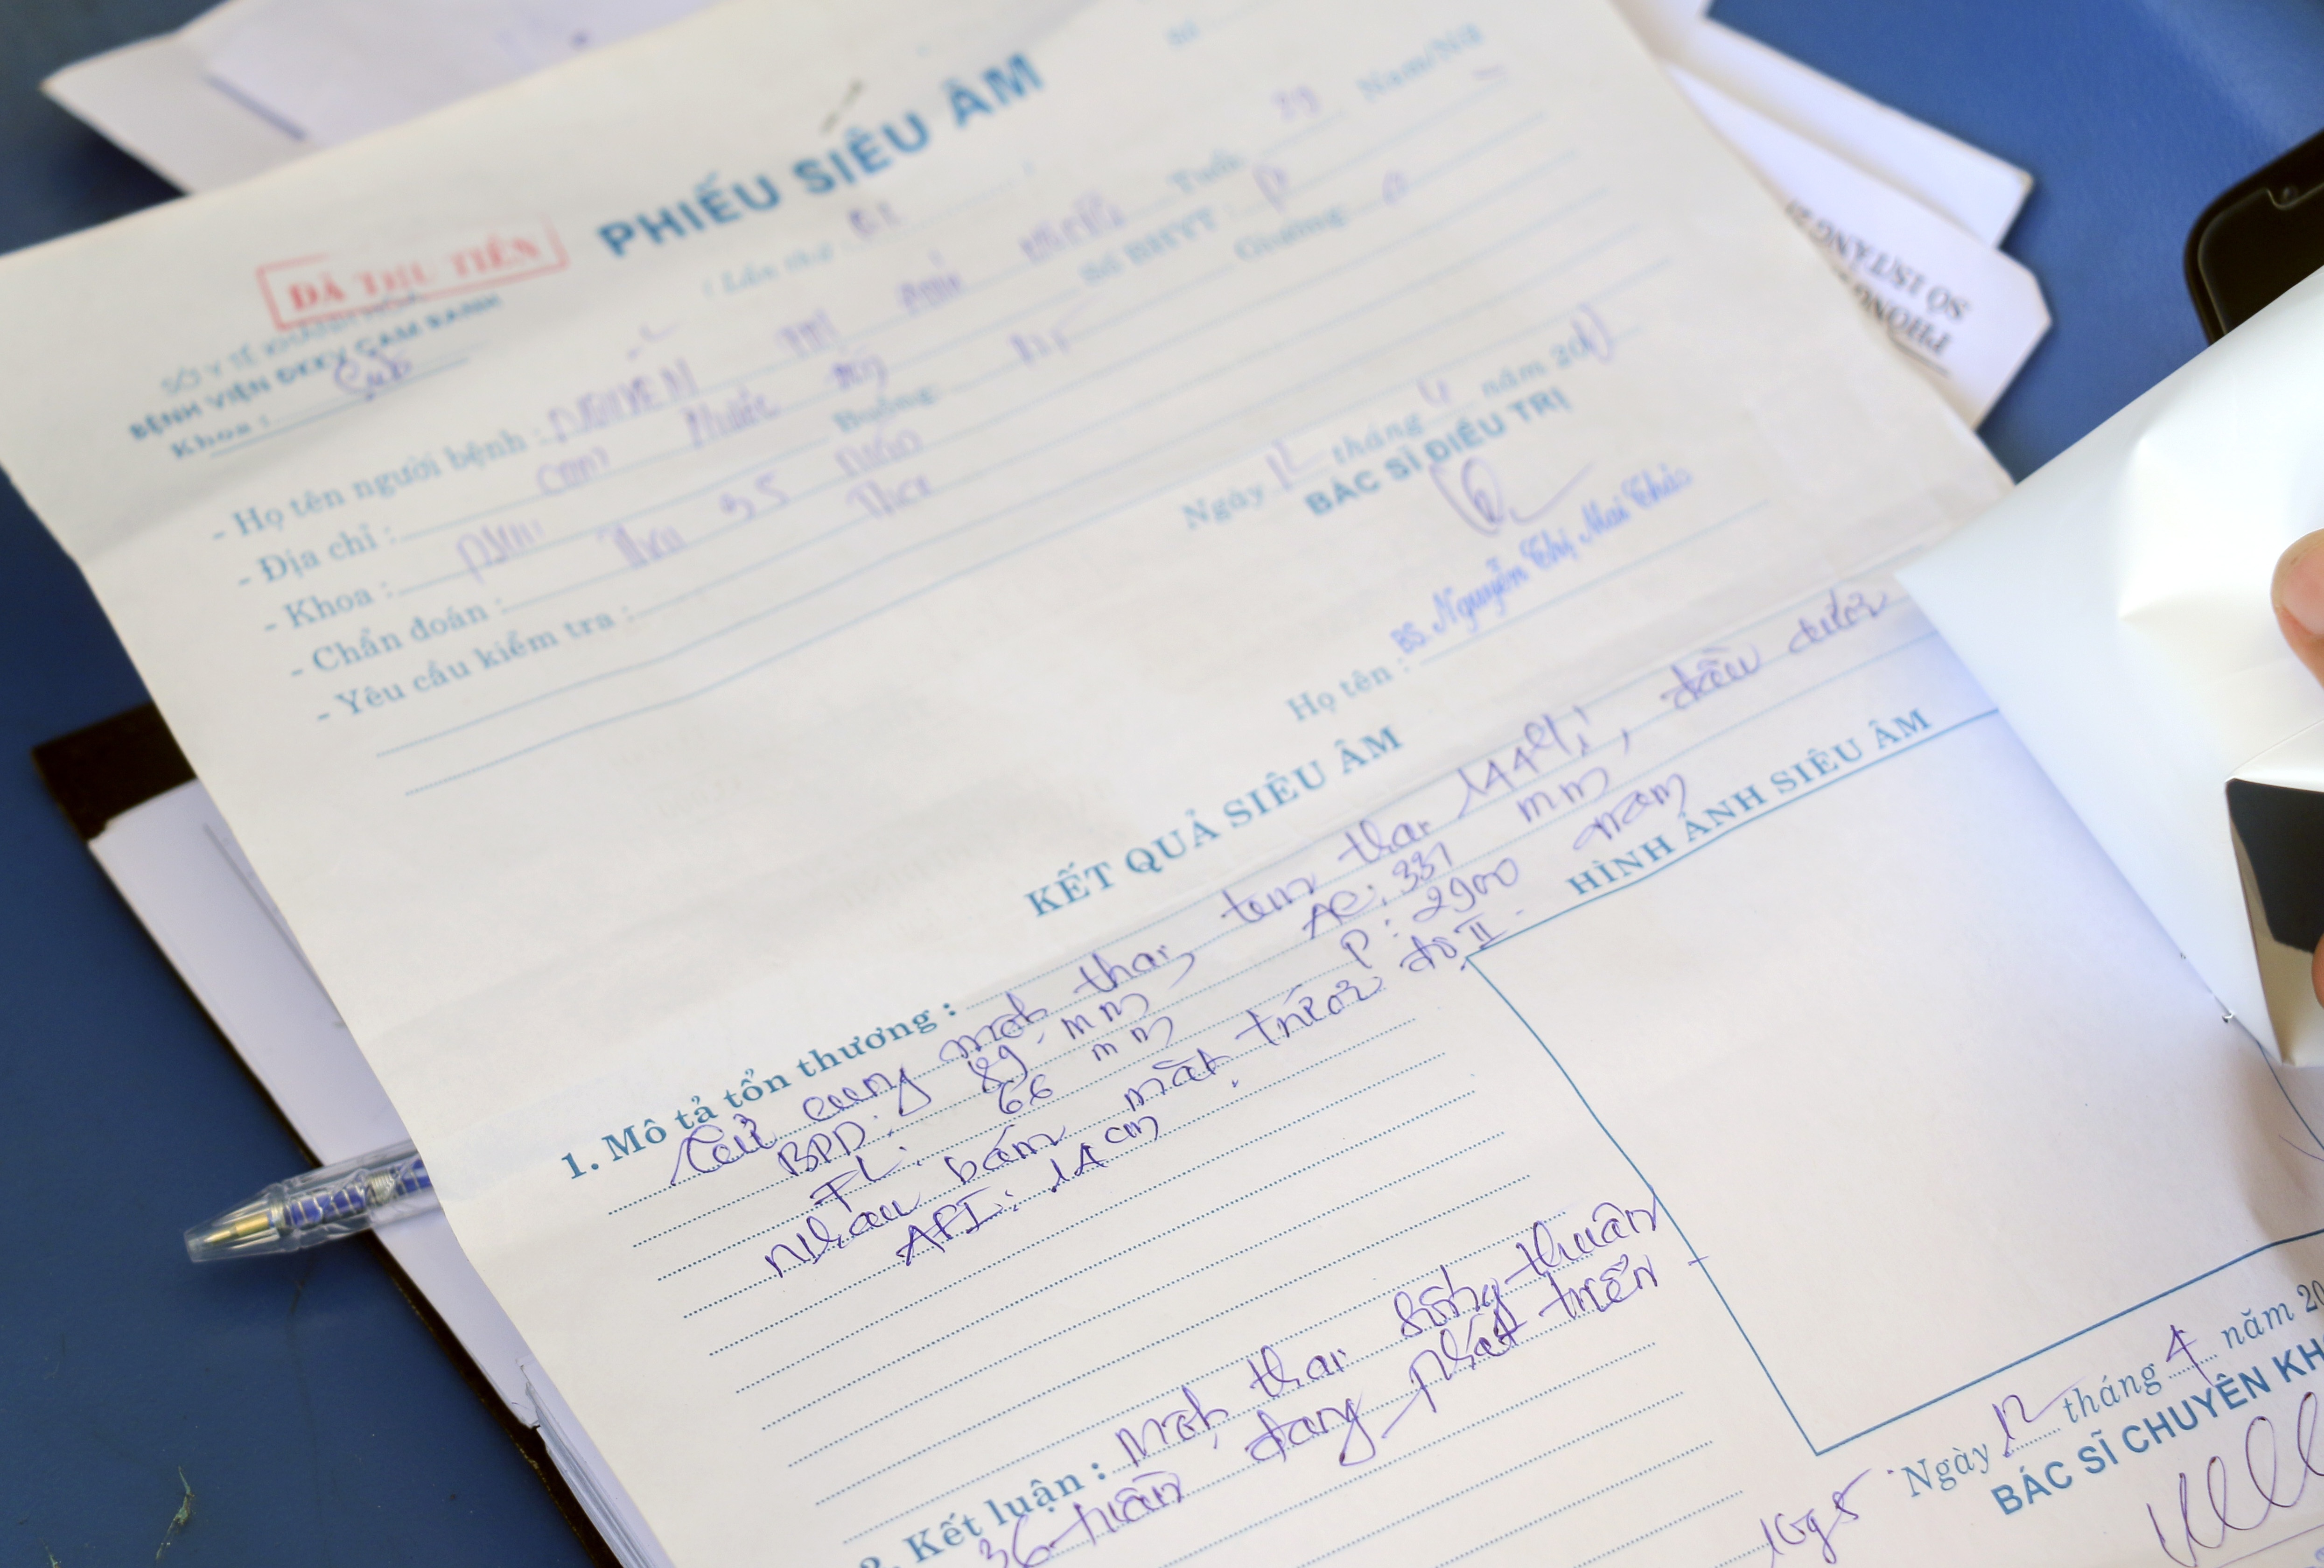 Số
PHIẾU SIÊU ÂM
ĐÃ THU TIỀN
( Lần thứ
SỞ Y TẾ KHÁNH HÒA
BỆNH VIỆN ĐKKV CAM RANH
Khoa :
- Họ tên người bệnh : NGUYỄN Tuổi Nam/Nữ
- Địa chỉ : Cam Phước Số BHYT :
- Khoa : Buồng Giường
- Chẩn đoán : Thai 35 tuần
- Yêu cầu kiểm tra :
Ngày 12 tháng 4 năm 20
BÁC SĨ ĐIỀU TRỊ
Họ tên : BS. Nguyễn Thị Mai Thảo
KẾT QUẢ SIÊU ÂM
1. Mô tả tổn thương :
Tử cung một thai, tim thai 144 l/, đầu dưới
BPD: 89 mm AC: 331 mm
FL: 66 mm P: 2900 gam
nhau bám mặt trước độ II.
API: 14 cm.
HÌNH ẢNH SIÊU ÂM
2. Kết luận : Một thai sống thuận
36 tuần đang phát triển
Ngày 12 tháng 4 năm 20
BÁC SĨ CHUYÊN KH
PHONG
SỐ 15T, TẦNG 2